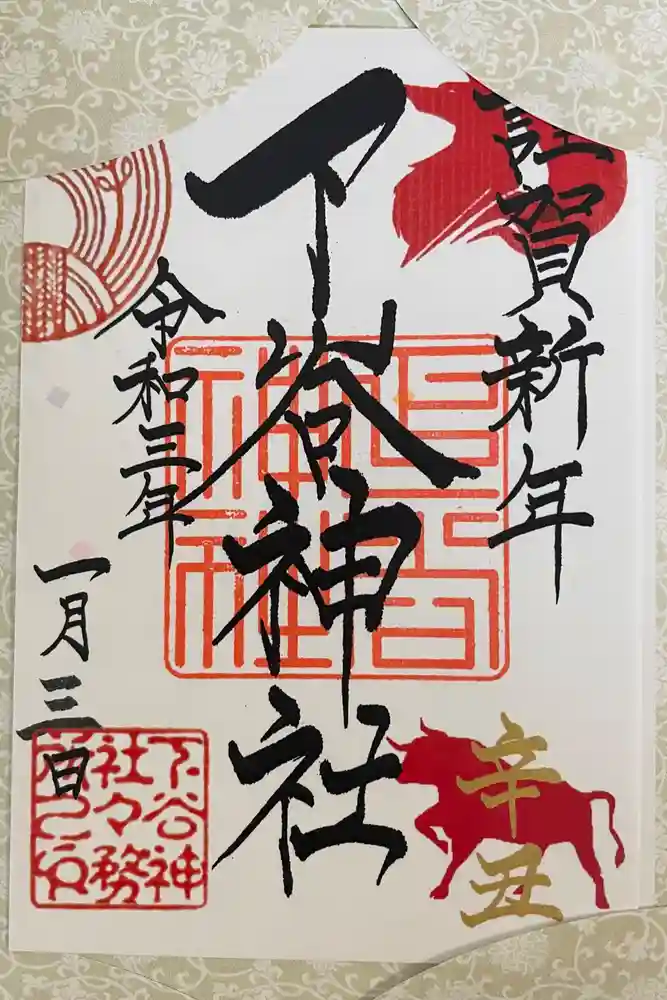 謹賀新年
下谷神社
令和三年
一月三日
辛丑
下谷神
社々務
所之印